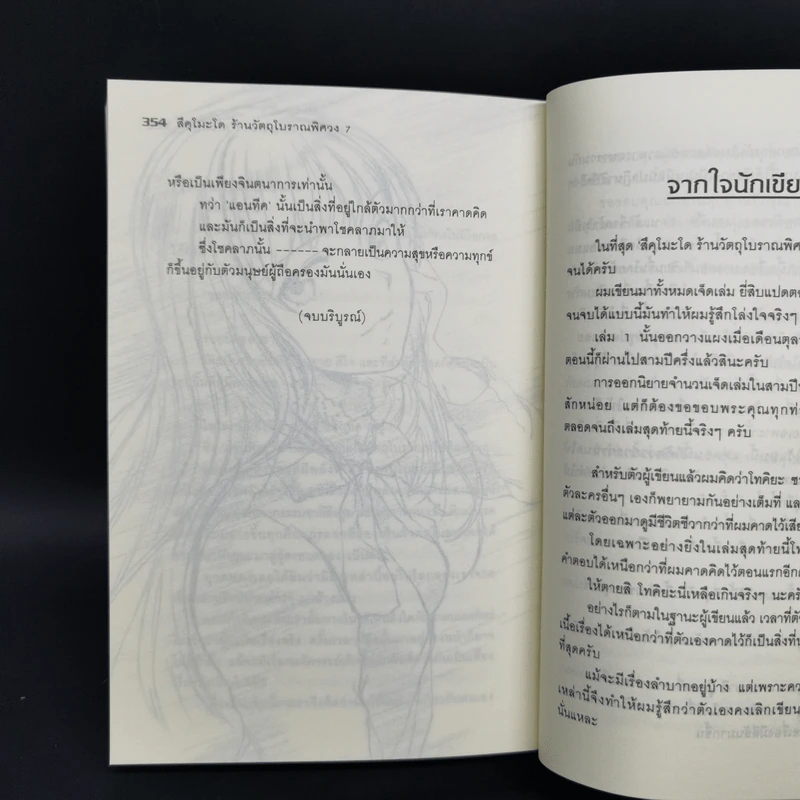 354 สึคุโมะโด ร้านวัตถุโบราณพิศวง 7
หรือเป็นเพียงจินตนาการเท่านั้น
ทว่า 'แอนทีค' นั้นเป็นสิ่งที่อยู่ใกล้ตัวมากกว่าที่เราคาดคิด
และมันก็เป็นสิ่งที่จะนำพาโชคลาภมาให้
ซึ่งโชคลาภนั้น ------ จะกลายเป็นความสุขหรือความทุกข์
ก็ขึ้นอยู่กับตัวมนุษย์ผู้ถือครองมันนั่นเอง
(จบบริบูรณ์)
จากใจนักเขีย
ในที่สุด 'สึคุโมะโด ร้านวัตถุโบราณพิศ
จนได้ครับ
ผมเขียนมาทั้งหมดเจ็ดเล่ม ยี่สิบแปดตอ
จนจบได้แบบนี้มันทำให้ผมรู้สึกโล่งใจจริงๆ
เล่ม 1 นั้นออกวางแผงเมื่อเดือนตุล
ตอนนี้ก็ผ่านไปสามปีครึ่งแล้วสินะครับ
การออกนิยายจำนวนเจ็ดเล่มในสามปี
สักหน่อย แต่ก็ต้องขอขอบพระคุณทุกท่
ตลอดจนถึงเล่มสุดท้ายนี้จริงๆ ครับ
สำหรับตัวผู้เขียนแล้วผมคิดว่าโทคิยะ ซ
ตัวละครอื่นๆ เองก็พยายามกันอย่างเต็มที่ แล
แต่ละตัวออกมาดูมีชีวิตชีวากว่าที่ผมคาดไว้เสีย
โดยเฉพาะอย่างยิ่งในเล่มสุดท้ายนี้โท
คำตอบได้เหนือกว่าที่ผมคาดคิดไว้ตอนแรกอีก
ให้ตายสิ โทคิยะนี่เหลือเกินจริงๆ นะครั
อย่างไรก็ตามในฐานะผู้เขียนแล้ว เวลาที่ตั
เนื้อเรื่องได้เหนือกว่าที่ตัวเองคาดไว้ก็เป็นสิ่งที่น
ที่สุดครับ
แม้จะมีเรื่องลำบากอยู่บ้าง แต่เพราะคว
เหล่านี้จึงทำให้ผมรู้สึกว่าตัวเองคงเลิกเขียน
นั่นแหละ